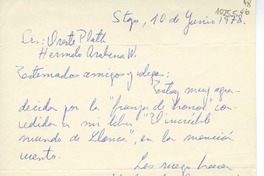 Stgo, 10 de Junio 1978.
Srs: Oreste Plath
Hermelo Arabena W.
Estimados amigos y colegas:
Estoy muy agra-
decida por la "franja de honor" con-
cedida a mi libro "El increíble
mundo de Llanca", en la mención
cuento.
Les ruego hacer